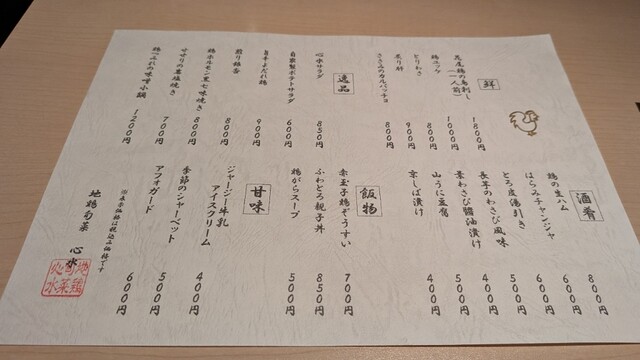 鮮
花尾鶏の鳥刺し
(一人前)
1800円
鶏ユッケ
1000円
とりわさ
800円
炙り肝
900円
ささみのカルパッチョ
800円
逸品
心水サラダ
850円
自家製ポテトサラダ
600円
旨辛よだれ鶏
900円
煎り銀杏
800円
鶏ホルモン黒七味焼き
800円
せせりの藁塩焼き
700円
鶏つみれの味噌小鍋
1200円
酒肴
鶏の生ハム
800円
はらみチャンジャ
600円
とろ皮湯引き
600円
長芋のわさび風味
500円
葉わさび醤油漬け
400円
山うに豆腐
500円
京しば漬け
400円
飯物
赤玉子鶏ぞうすい
700円
ふわとろ親子丼
850円
鶏がらスープ
500円
甘味
ジャージー牛乳
アイスクリーム
400円
季節のシャーベット
500円
アフォガード
600円
※表示価格は税込み価格です
地鶏旬菜 心水
地鶏
旬菜
心水